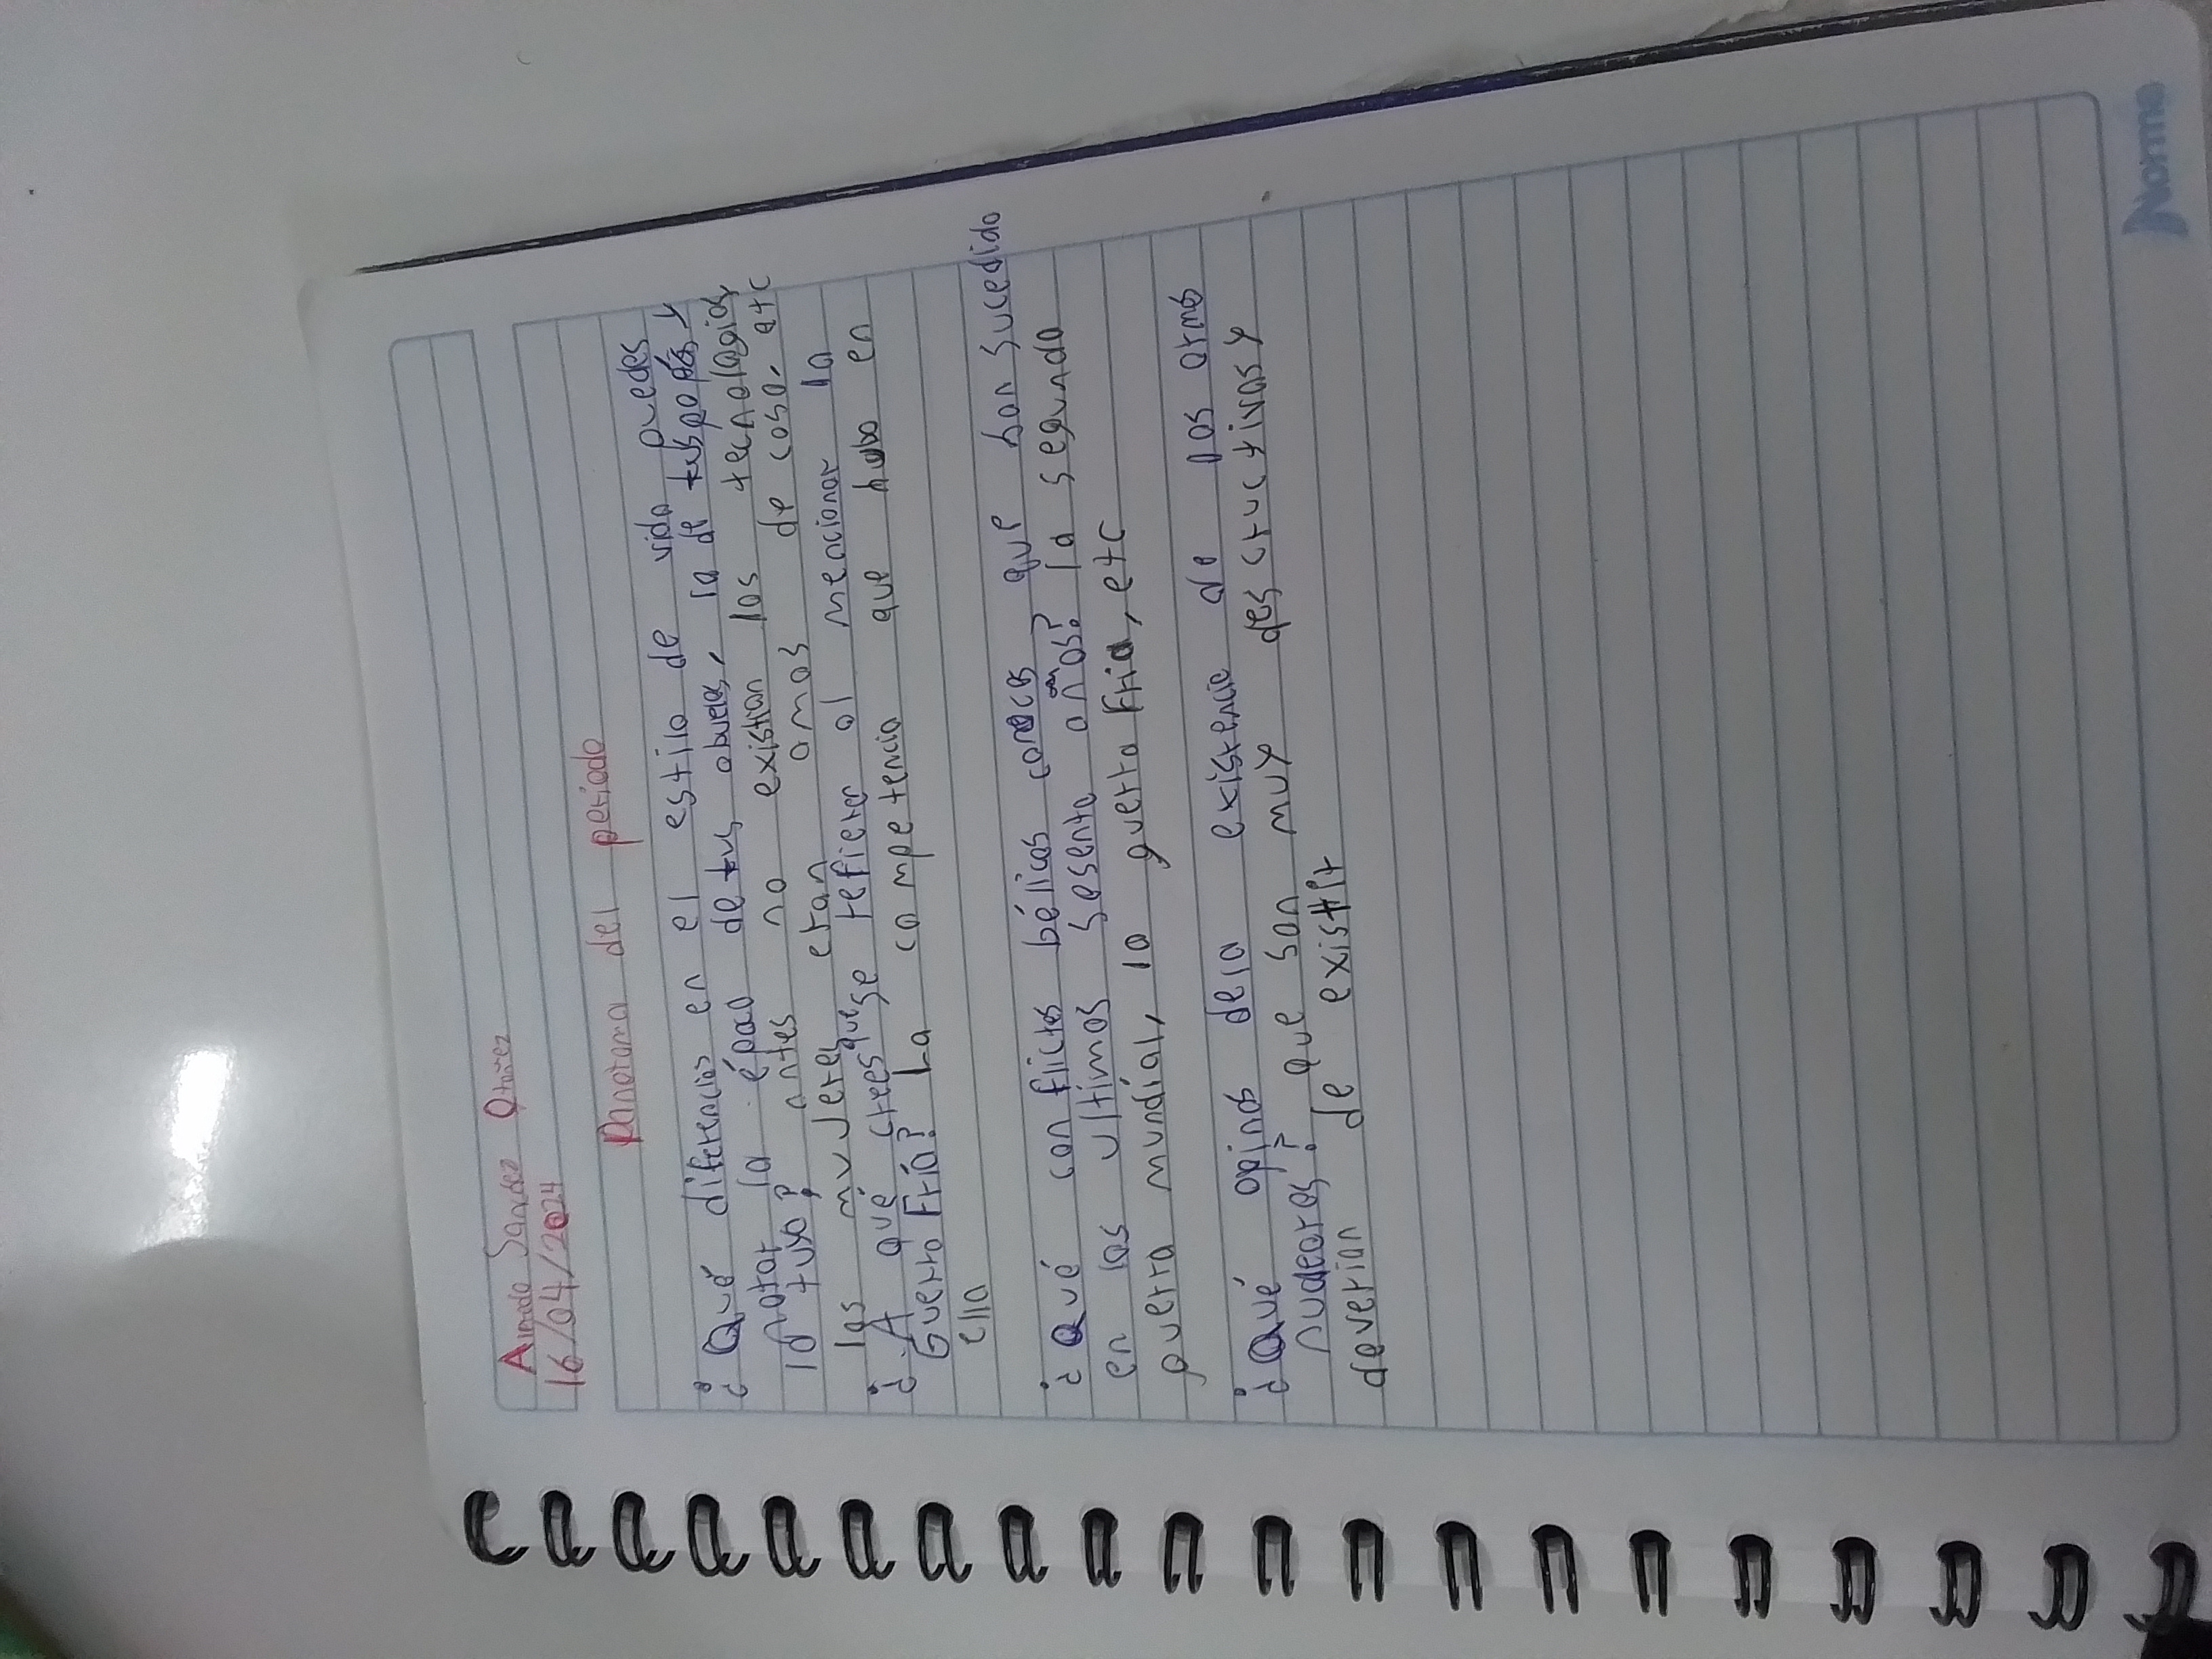 Armado Sandez Otañez
16/04/2024
Panorama del periodo
¿Qué diferencias en el estilo de vida puedes
notar la época de tus abuelos, la de tus papás y
la tuya? antes no existian las tecnologias,
las mujeres eran amas de casa, etc
¿A qué crees que se refieren al mencionar la
Guerra Fría? La competencia que hubo en
ella
¿Qué conflictos bélicos conoces que han sucedido
en los ultimos sesenta años? la segunda
guerra mundial, la guerra fria, etc
¿Qué opinas de la existencia de las armas
nucleares? que son muy destructivas y
deverian de existir
Norma